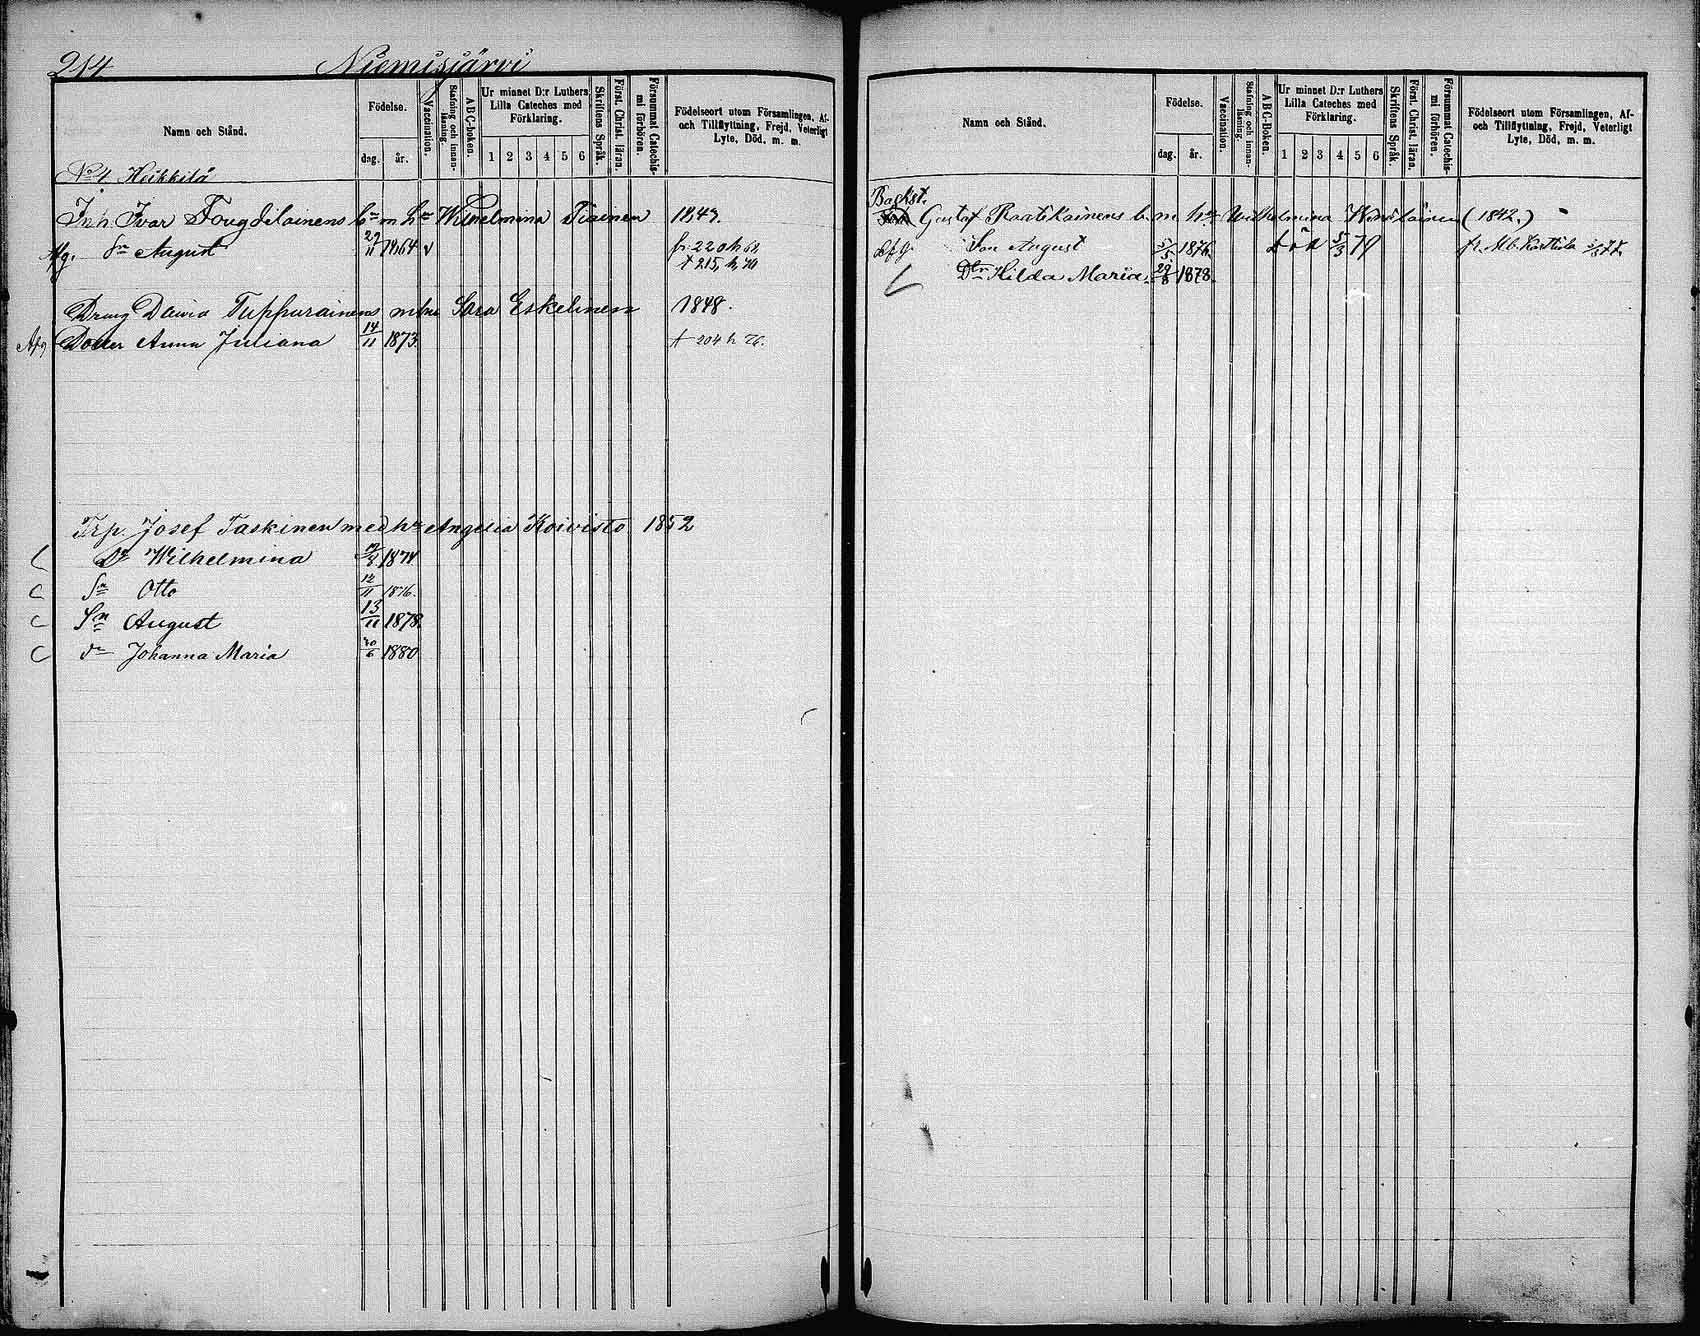 214 Niemisjärvi
Namn och Stånd.
Födelse.
dag. år.
Vaccination.
Stafning och innanläsning.
ABC-boken.
Ur minnet D:r Luthers Lilla Cateches med Förklaring.
1 2 3 4 5 6
Skriftens Språk.
Först. Christ. läran.
Försummat Catechismi förhören.
Födelseort utom Församlingen, Af- och Tillflyttning, Frejd, Veterligt Lyte, Död, m. m.
No 4 Heikkilä
Inh. Ivar Fougdilainens m. Wilhelmina Tiainen
Afg. Sn August 29/11 1864 v fr. 220 h
t 215, h,
Dreng Dawid Tuppurainens Sara Eskelinen 1848.
Afg Dotter Anna Juliana 14/11 1873 t 204 h 76.
Trp. Josef Taskinen med hu Angelia Koivisto 1852
Dr Wilhelmina 1874
Sn Otto 12/11 1876.
Sn August 13/11 1878.
dr Johanna Maria 20/6 1880
Namn och Stånd.
Födelse.
dag. år.
Vaccination.
Stafning och innanläsning.
ABC-boken.
Ur minnet D:r Luthers Lilla Cateches med Förklaring.
1 2 3 4 5 6
Skriftens Språk.
Först. Christ. läran.
Försummat Catechismi förhören.
Födelseort utom Församlingen, Af- och Tillflyttning, Frejd, Veterligt Lyte, Död, m. m.
Backst.
Gustaf Raatikainens m. Wilhelmina (1842.)
Son August 5/5 1876 död 5/3 79 fr. Karttula
Dr Hilda Maria 29/8 1878.